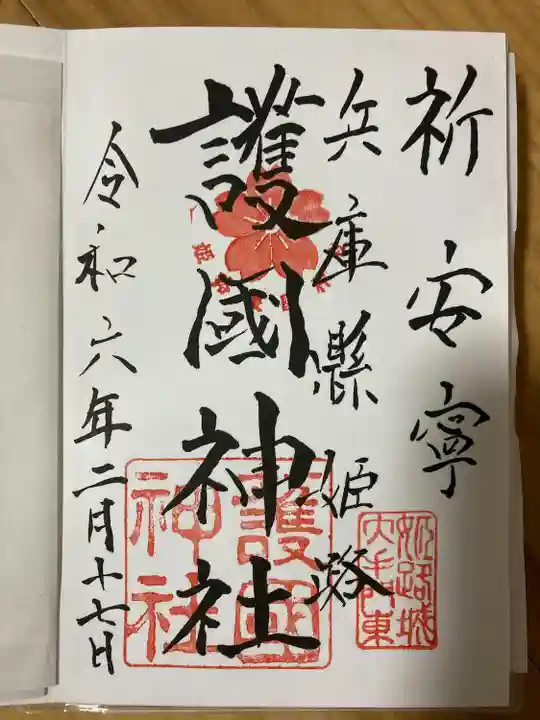 祈安寧
兵庫縣姫路
護國神社
令和六年二月十七日
護國
神社
姫路城
大手門東